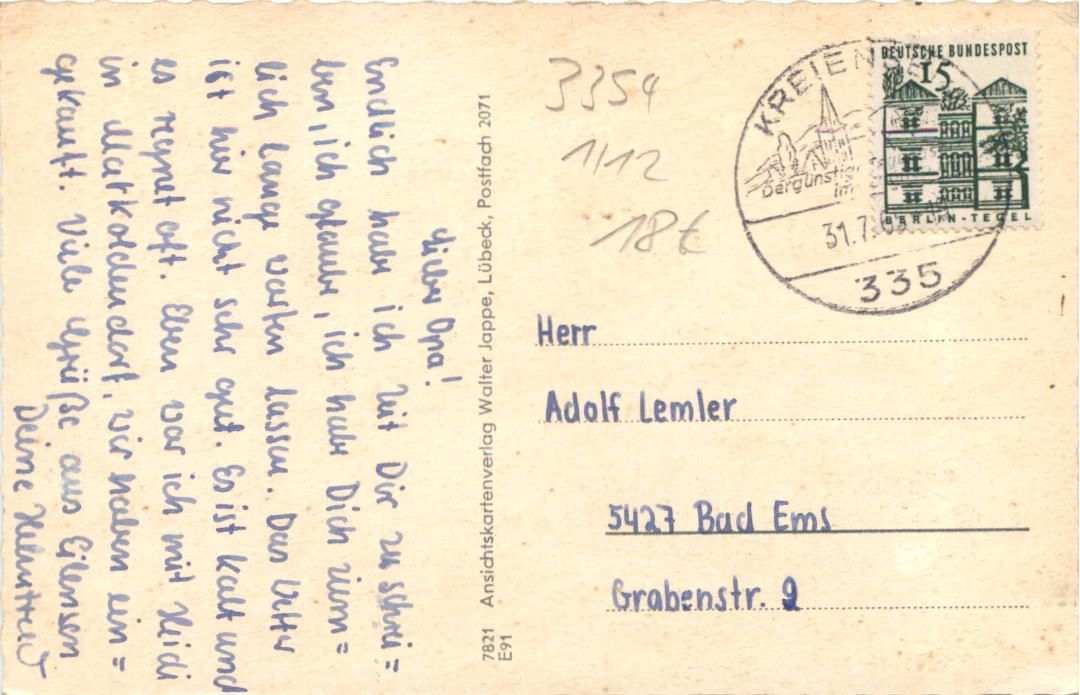 Lieber Opa!
Endlich habe ich Zeit Dir zu schrei=
ben, ich glaube, ich habe Dich ziem=
lich lange warten lassen. Das Wetter
ist hier nicht sehr gut. Es ist kalt und
es regnet oft. Eben war ich mit Heidi
in Markoldendorf, wir haben ein=
gekauft. Viele Grüße aus Eilensen
Deine
7821 Ansichtskartenverlag Walter Jappe, Lübeck, Postfach 2071
E91
3354
1/12
18€
KREIENSEN
Der günstige
im
31.7.
335
DEUTSCHE BUNDESPOST
15
BERLIN-TEGEL
Herr
Adolf Lemler
5427 Bad Ems
Grabenstr. 9